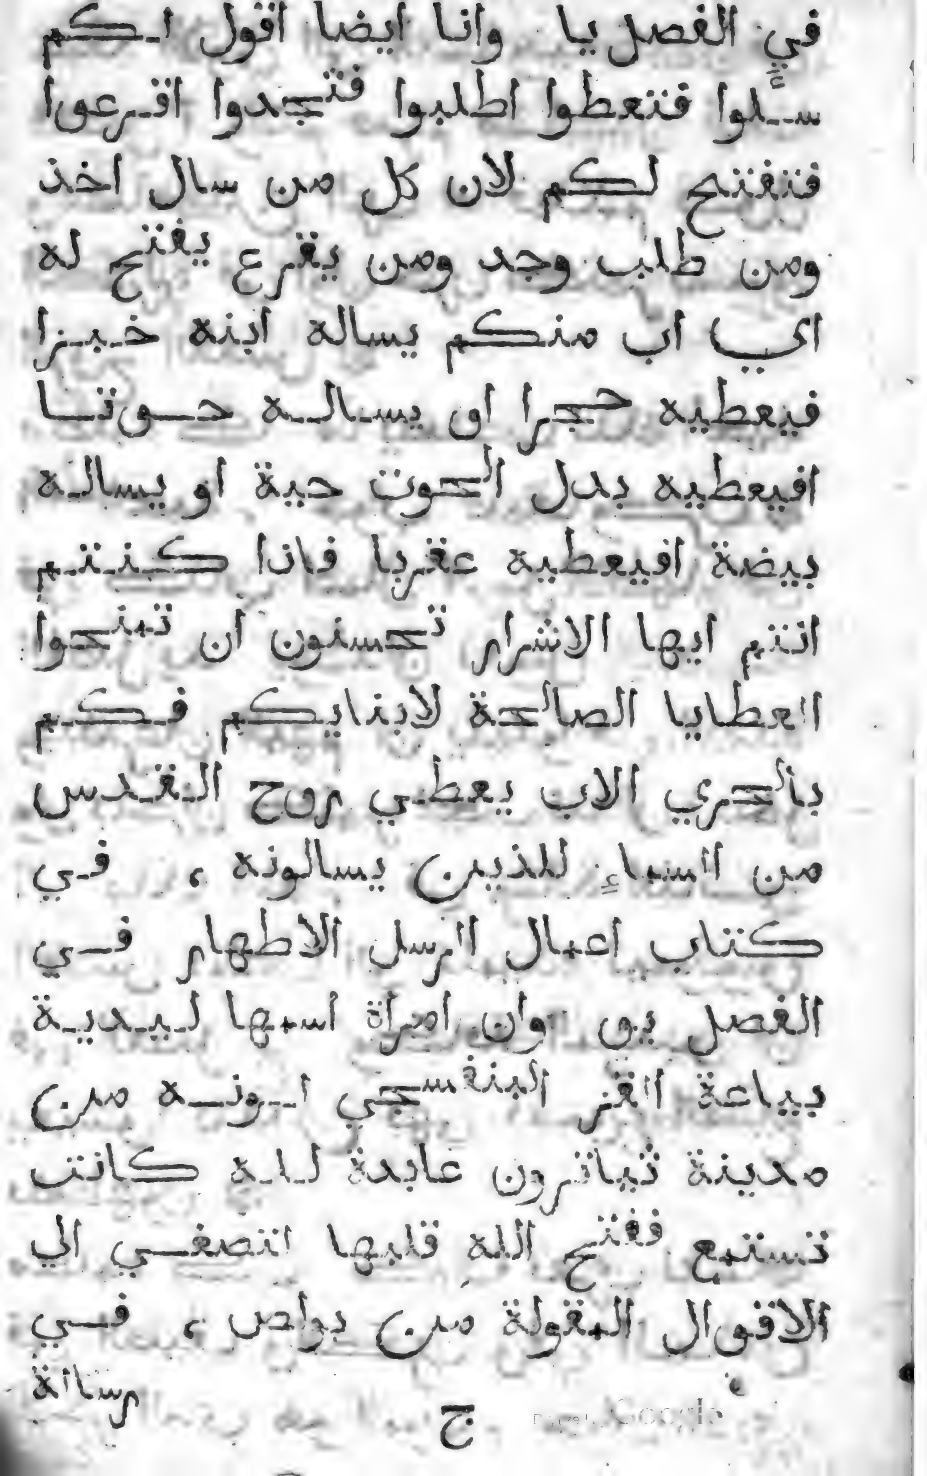 في الفصل يا وانا ايضا اقول لكم
سئلوا فتعطوا اطلبوا فتجدوا اقرعوا
فتفتح لكم لان كل من سال اخذ
ومن طلب وجد ومن يقرع يفتح له
اي اب منكم يساله ابنه خبزا
فيعطيه حجرا او يساله حوتا
افيعطيه بدل الحوت حية او يساله
بيضة افيعطيه عقربا فاذا كنتم
انتم ايها الاشرار تحسنون ان تمنحوا
العطايا الصالحة لابنايكم فكم
بالحري الاب يعطي روح القدس
من السماء للذين يسالونه ، في
كتاب اعمال الرسل الاطهار في
الفصل يو وان امراة اسمها ليدية
بياعة القز البنفسجي ارونه من
مدينة ثياترون عابدة لله كانت
تستمع ففتح الله قلبها لتصغي الي
الاقوال المقولة من بولص ، في
رسالة
ج
Google